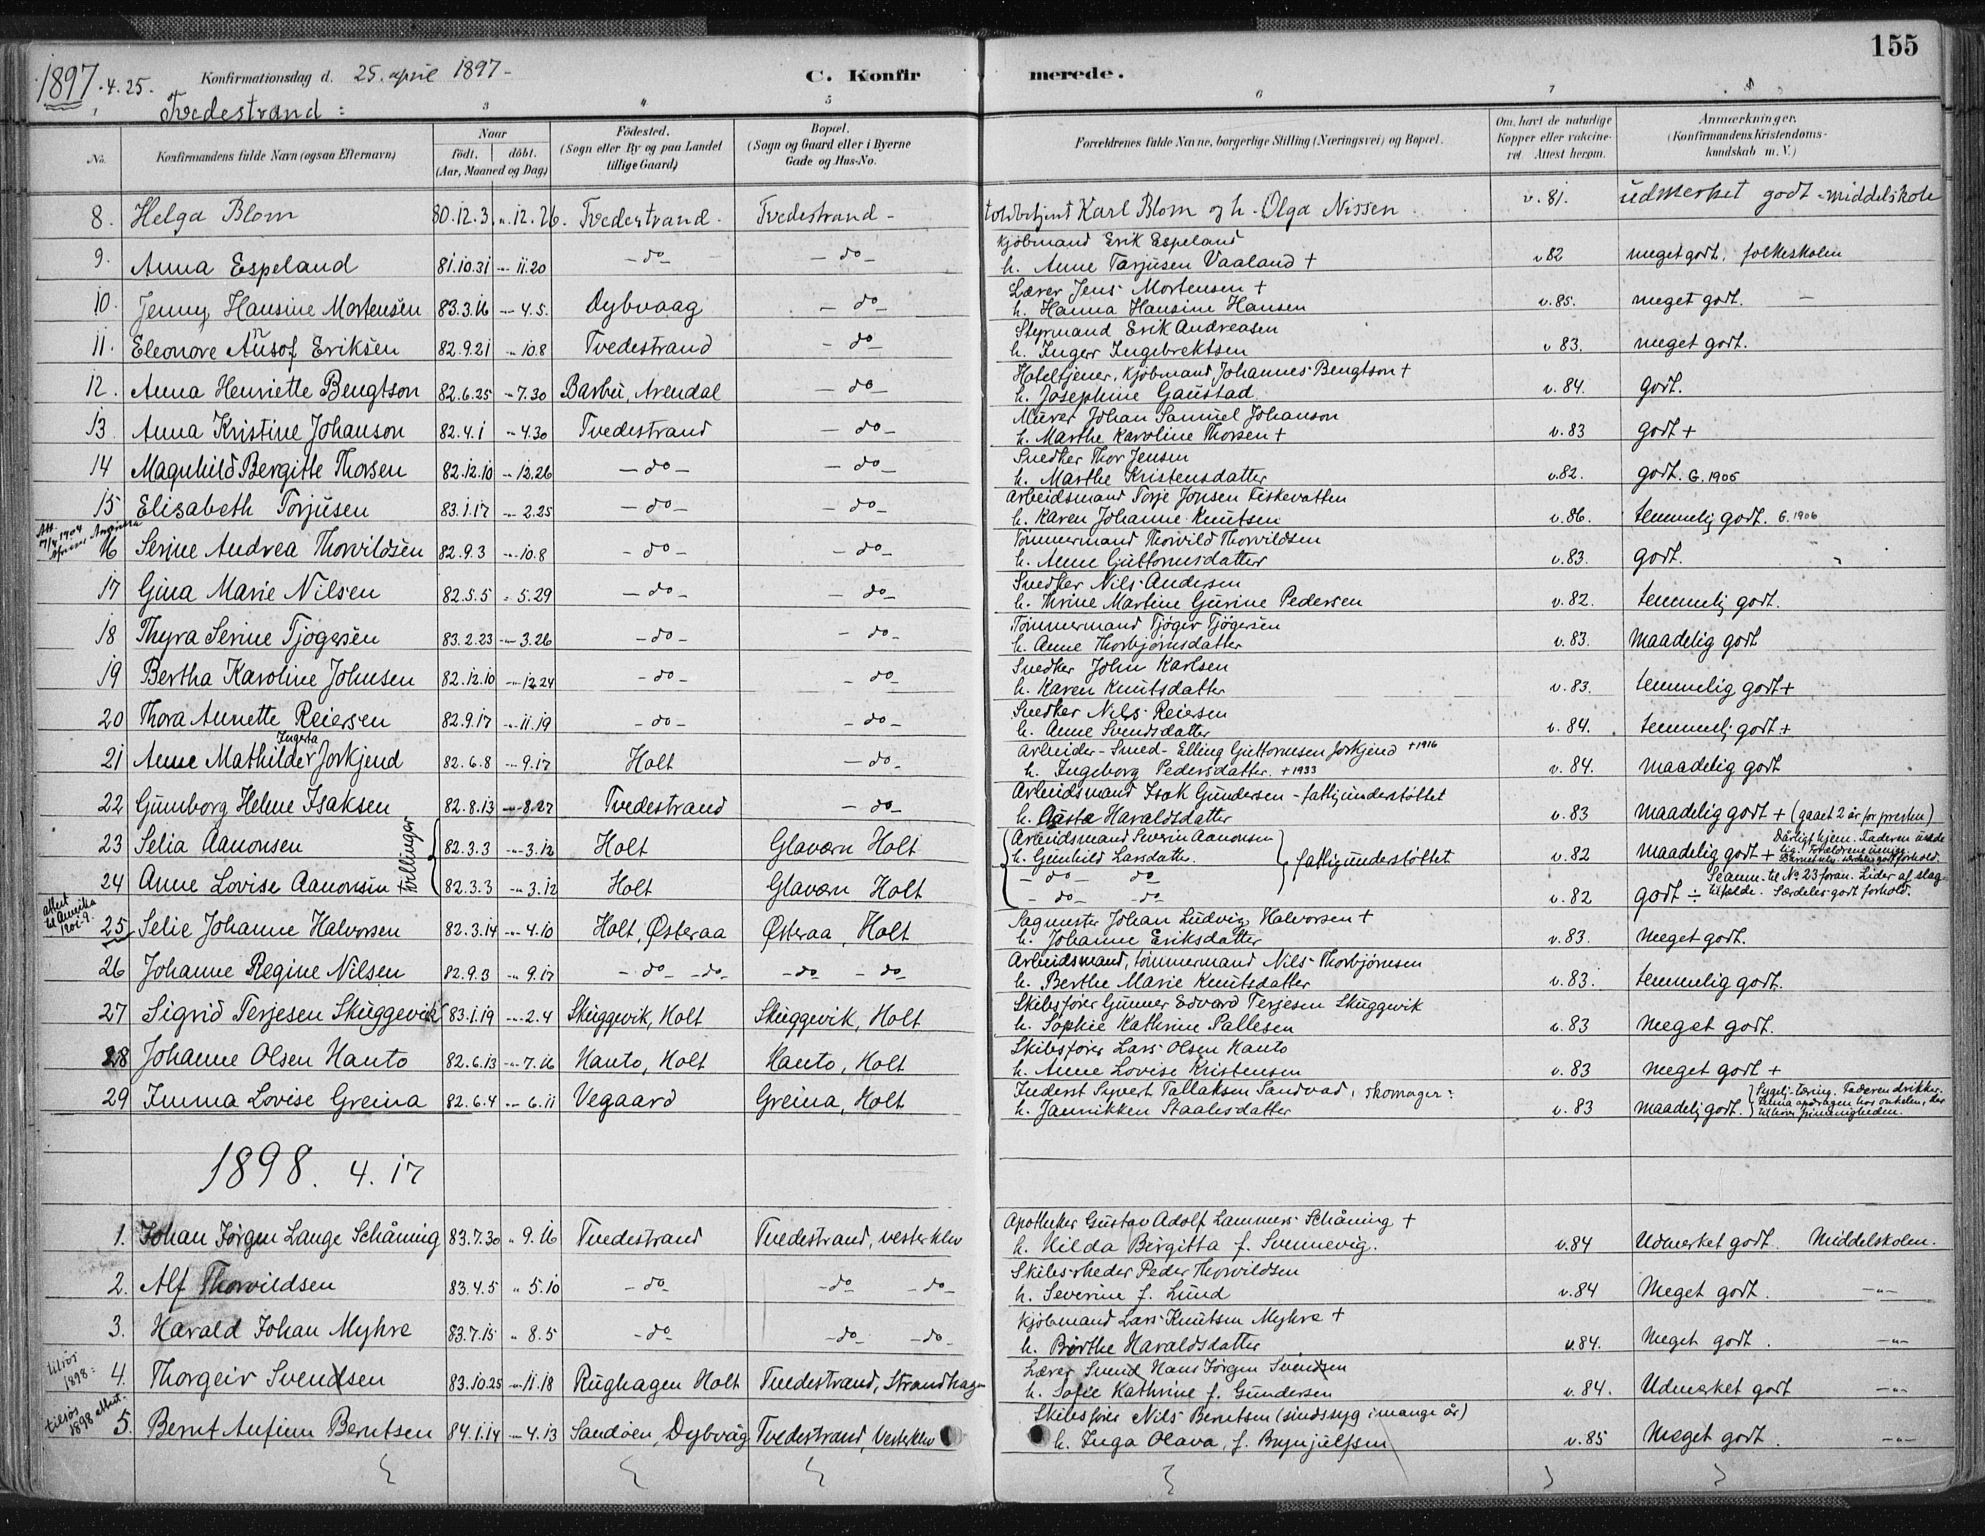 155
1897 . 4. 25. Konfirmationsdag d. 25. april 1897 - C. Konfirmerede.
Tvedestrand :
1 3 4 5 6 7 8
No. Konfirmandens fulde Navn (ogsaa Efternavn) Naar født. døbt. (Aar, Maaned og Dag) Fødested. (Sogn eller By og paa Landet tillige Gaard) Bopæl. (Sogn og Gaard eller i Byerne Gade og Hus-No. Forældrenes fulde Navne, borgerlige Stilling (Næringsvei) og Bopæl. Om havt de naturlige Kopper eller vaccineret. Attest herom. Anmærkninger. (Konfirmandens Kristendomskundskab m. V.)
8. Helga Blom 80.12.3 " 12.26. Tvedestrand. Tvedestrand - toldbetjent Karl Blom og h. Olga Nissen v. 81. udmerket godt - middelskole
9. Anna Espeland 81.10.31 - 11.20 - do - - do - Kjøbmand Erik Espeland
h. Anne Tarjusen Vaaland + v 82 meget godt. folkeskolen
10. Jenny Hansine Mortensen 83.3.16 - 4.5. Dybvaag - do - Lærer Jens Mortensen +
h. Hanna Hansine Hansen v. 85. meget godt. -
11. Eleonore Ansof Eriksen 82.9.21 - 10.8 Tvedestrand - do - Styrmand Erik Andreasen
h. Inger Ingebrektsen v 83. meget godt.
12. Anna Henriette Bengtson 82.6.25 - 7.30 Barbu, Arendal - do - Hoteltjener, Kjøbmand Johannes Bengtson +
h. Josephine Gaustad v. 84. godt.
13. Anna Kristine Johanson 82.4.1 - 4.30 Tvedestrand - do - Murer Johan Samuel Johanson
h. Marthe Karoline Thorsen + v. 83 godt +
14 Magnhild Bergitte Thorsen 82.12.10 - 12.26 - do - - do - Snedker Thor Jensen
h. Marthe Kristensdatter v. 82. godt. G. 1905
15 Elisabeth Torjusen 83.1.17 - 2.25 - do - - do - Arbeidsmand Torje Jonsen Fiskevatten
h. Karen Johanne Knutsen v. 86. temmelig godt. G. 1906
16 Serine Andrea Thorvildsen 82.9.3 - 10.8 - do - - do - Tømmermand Thorvild Thorvildsen
h. Anne Guttormsdatter v. 83. godt.
17 Gina Marie Nilsen 82.5.5 - 5.29 - do - - do - Snedker Nils Andersen
h. Thrine Martine Gurine Pedersen v. 82. temmelig godt.
18 Thyra Serine Tjøgersen 83.2.23 - 3.26 - do - - do - Tømmermand Tjøger Tjøgersen
h. Anne Thorbjørnsdatter v. 83. maadelig godt
19 Bertha Karoline Johnsen 82.12.10 - 12.24 - do - - do - Snedker John Karlsen
h. Karen Knutsdatter v. 83. temmelig godt +
20 Thora Annette Reiersen 82.9.17 - 11.19 - do - - do - Snedker Nils Reiersen
h. Anne Svendsdatter v. 84. temmelig godt +
21 Anne Mathilde Ingerta Jorkjend 82.6.8 - 9.17 Holt - do - Arbeider - Smed - Elling Guttormsen Jorkjend + 1916
h. Ingeborg Pedersdatter. + 1933 v. 84. maadelig godt
22 Gunborg Helene Isaksen 82.8.13 - 8.27 Tvedestrand - do - Arbeidsmand Isak Gundersen - fattigunderstøttet
h. Aaste Haraldsdatter v. 83 maadelig godt + (gaaet 2 år for presten)
23 Selia Aanonsen tvillinger 82.3.3 - 3.12 Holt Glaværn Holt Arbeidsmand Severin Aanonsen
h. Gunhild Larsdatter. fattigunderstøttet v. 82 maadelig godt + Dårligt hjem. Faderen
24 Anne Lovise Aanonsen 82.3.3 - 3.12 Holt Glaværn Holt - do - do
- do - - do - v. 82 godt ÷ Se anm. til No 23 foran. Lider af slagtilfælde. Særdeles godt forhold.
25 Selie Johanne Halvorsen 82.3.14 - 4.10 Holt, Østeraa Østeraa, Holt Sagmester Johan Ludvig Halvorsen +
h. Johanne Eriksdatter v. 83. meget godt.
26 Johanne Regine Nilsen 82.9.3 - 9.17 - do - - do - - do - do - Arbeidsmand, tømmermand Nils Thorbjørnsen
h. Berthe Marie Knutsdatter v. 83. temmelig godt.
27 Sigrid Terjesen Skuggevik 83.1.19 - 2.4 Skuggevik, Holt Skuggevik, Holt Skibsfører Gunner Edvard Terjesen Skuggevik
h. Sophie Kathrine Pallesen v. 83 meget godt.
28 Johanne Olsen Hanto 82.6.13 - 7.16 Hanto, Holt Hanto, Holt Skibsfører Lars Olsen Hanto
h. Anne Lovise Kristensen v. 83 meget godt +
29 Emma Lovise Greina 82.6.4 - 6.11 Vegaard Greina, Holt Inderst Syvert Tallaksen Sandvad, skomager:
h. Jannikken Staalesdatter v. 83 maadelig godt. Faderen drikker.
1898. 4. 17
1. Johan Jørgen Lange Schåning 83.7.30 " 9.16 Tvedestrand Tvedestrand, vesterklev Apotheker Gustav Adolf Lammers Schåning +
h. Hilda Birgitta f. Svennevig. v. 84 Udmerket godt Middelskolen.
2. Alf Thorvildsen 83.4.5 " 5.10 - do - - do - do - Skibsrheder Peder Thorvildsen
h. Severine f. Lund v. 84 Meget godt. -"-
3. Harald Johan Myhre 83.7.15 " 8.5 - do - - do - - do - Kjøbmand Lars Knutsen Myhre +
h. Børthe Haraldsdatter v. 84. Meget godt. -"-
tilsjøs 1898: 4. Thorgeir Svendsen 83.10.25 - 11.18 Rughagen Holt Tvedestrand, Strandhagen Lærer Svend Hans Jørgen Svendsen
h. Sofie Kathrine f. Gundersen v. 84. Udmerket godt -"-
tilsjøs 1898 attest. 5. Bernt Anfinn Berntsen 84.1.14 - 4.13 Sandøen, Dybvåg Tvedestrand, Vesterklev Skibsfører Nils Berntsen (sindssyg i mange år)
h. Inga Olava, f. Brynjulfsen v. 85 Meget godt. -"-